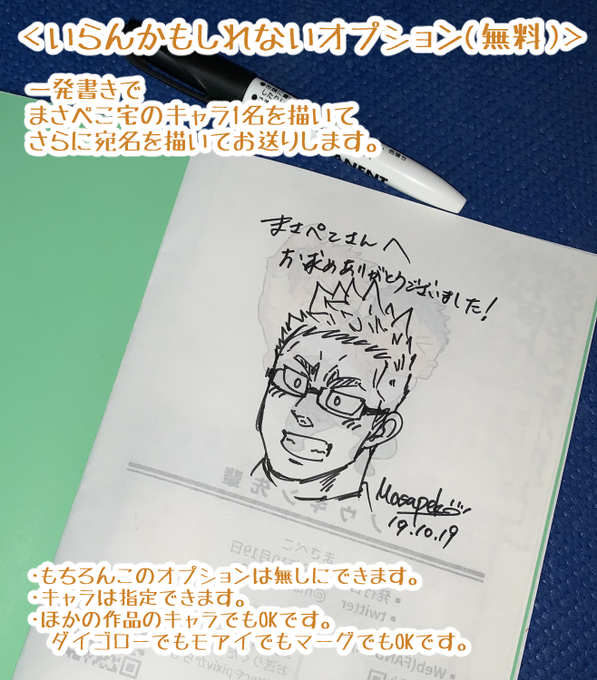 <いらんかもしれないオプション(無料)>
一発書きで
まさぺこ宅のキャラ1名を描いて
さらに宛名を描いてお送りします。
まさぺこさんへ
お求めありがとうございました!
Masapeko
19.10.19
ノウキン先輩
まさぺこ
twitter
・もちろんこのオプションは無しにできます。
・キャラは指定できます。
・ほかの作品のキャラでもOKです。
ダイゴローでもモアイでもマーグでもOKです。